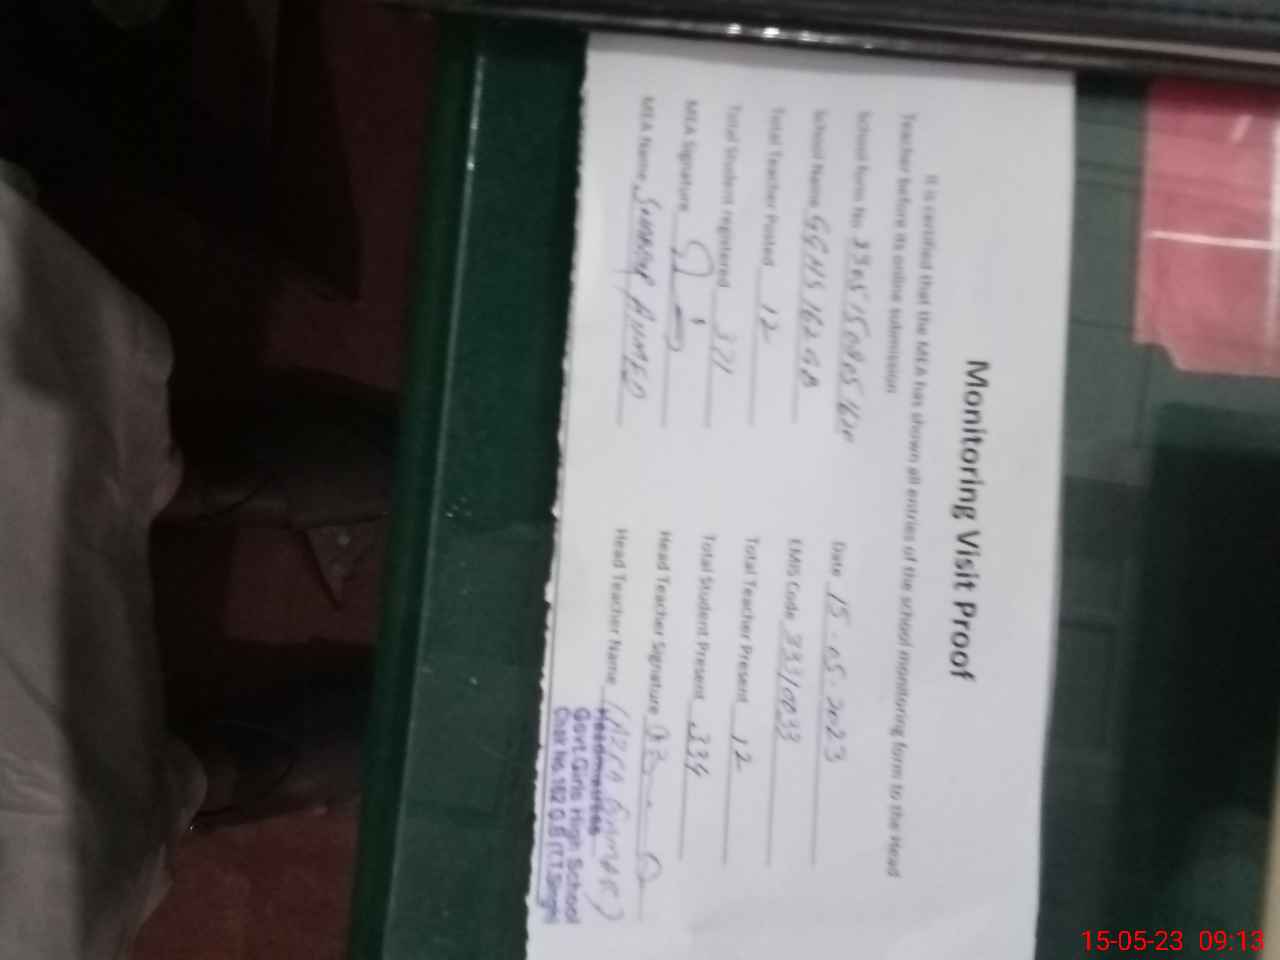 Monitoring Visit Proof
It is certified that the MEA has shown all entries of the school monitoring form to the Head
Teacher before its online submission
School form No. Date 15.05.2023
School Name GGHS 162 GB EMIS Code 33310033
Total Teacher Posted 12 Total Teacher Present 12
Total Student registered 371 Total Student Present 334
MEA Signature Head Teacher Signature
MEA Name AHMED Head Teacher Name
Headmistress
Govt. Girls High School
Chak No. 162 G.B (T.T.Singh)
15-05-23 09:13